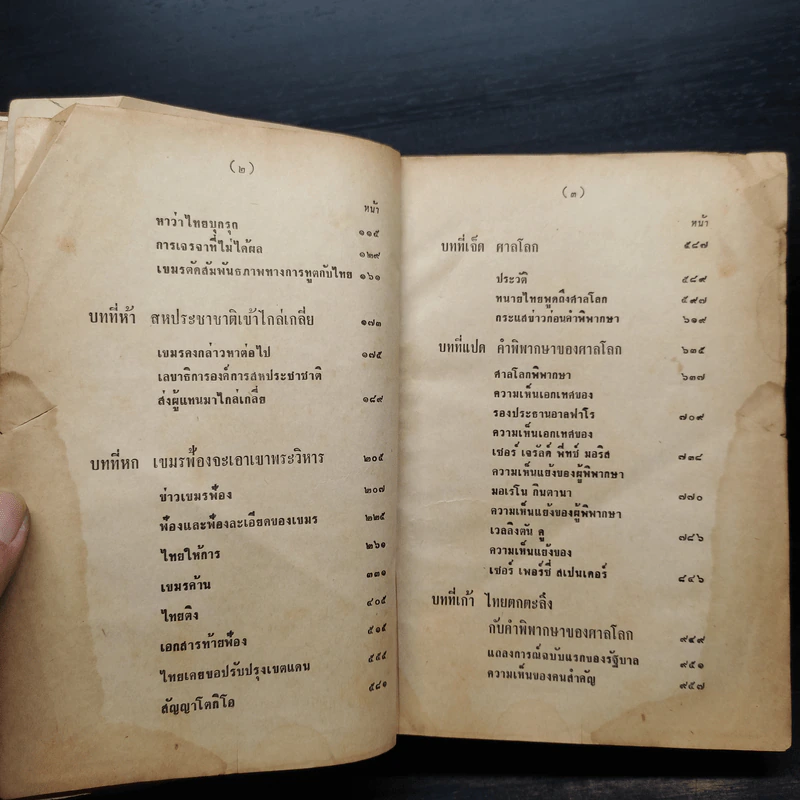 (๒)
หน้า
หาว่าไทยบุกรุก ๑๑๕
การเจรจาที่ไม่ได้ผล ๑๒๙
เขมรตัดสัมพันธภาพทางการทูตกับไทย ๑๖๑
บทที่ห้า สหประชาชาติเข้าไกล่เกลี่ย ๑๗๓
เขมรคงกล่าวหาต่อไป ๑๗๕
เลขาธิการองค์การสหประชาชาติ
ส่งผู้แทนมาไกล่เกลี่ย ๑๘๙
บทที่หก เขมรฟ้องจะเอาเขาพระวิหาร ๒๐๕
ข่าวเขมรฟ้อง ๒๐๗
ฟ้องและฟ้องละเอียดของเขมร ๒๒๕
ไทยให้การ ๒๖๑
เขมรค้าน ๓๓๑
ไทยติง ๔๐๕
เอกสารท้ายฟ้อง ๕๑๕
ไทยเคยขอปรับปรุงเขตแดน ๕๕๔
สัญญาโตกิโอ ๕๘๑
(๓)
หน้า
บทที่เจ็ด ศาลโลก ๕๘๗
ประวัติ ๕๘๙
ทนายไทยพูดถึงศาลโลก ๕๙๗
กระแสข่าวก่อนคำพิพากษา ๖๑๙
บทที่แปด คำพิพากษาของศาลโลก ๖๓๕
ศาลโลกพิพากษา ๖๓๗
ความเห็นเอกเทศของ
รองประธานอาลฟาโร ๗๐๙
ความเห็นเอกเทศของ
เซอร์ เจรัลด์ ฟิทซ์ มอริส ๗๓๔
ความเห็นแย้งของผู้พิพากษา
มอเรโน กินตานา ๗๗๐
ความเห็นแย้งของผู้พิพากษา
เวลลิงตัน คู ๗๘๖
ความเห็นแย้งของ
เซอร์ เพอร์ซี่ สเปนเดอร์ ๘๔๖
บทที่เก้า ไทยตกตะลึง
กับคำพิพากษาของศาลโลก ๙๔๙
แถลงการณ์ฉบับแรกของรัฐบาล ๙๕๑
ความเห็นของคนสำคัญ ๙๕๗